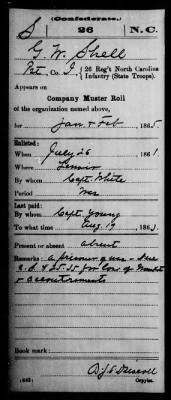 (Confederate.)
S 26 N.C.
G. W. Shell
Pvt, Co. I, 26 Reg't North Carolina
Infantry (State Troops).
Appears on
Company Muster Roll
of the organization named above,
for Jan & Feb, 1865.
Enlisted:
When July 26, 1861.
Where Lenoir
By whom Capt. White
Period War
Last paid:
By whom Capt. Young
To what time Aug 19, 1863.
Present or absent absent
Remarks: a prisoner of war - due
for Loss of
& accoutrements
Book mark:
(642)
Copyist.